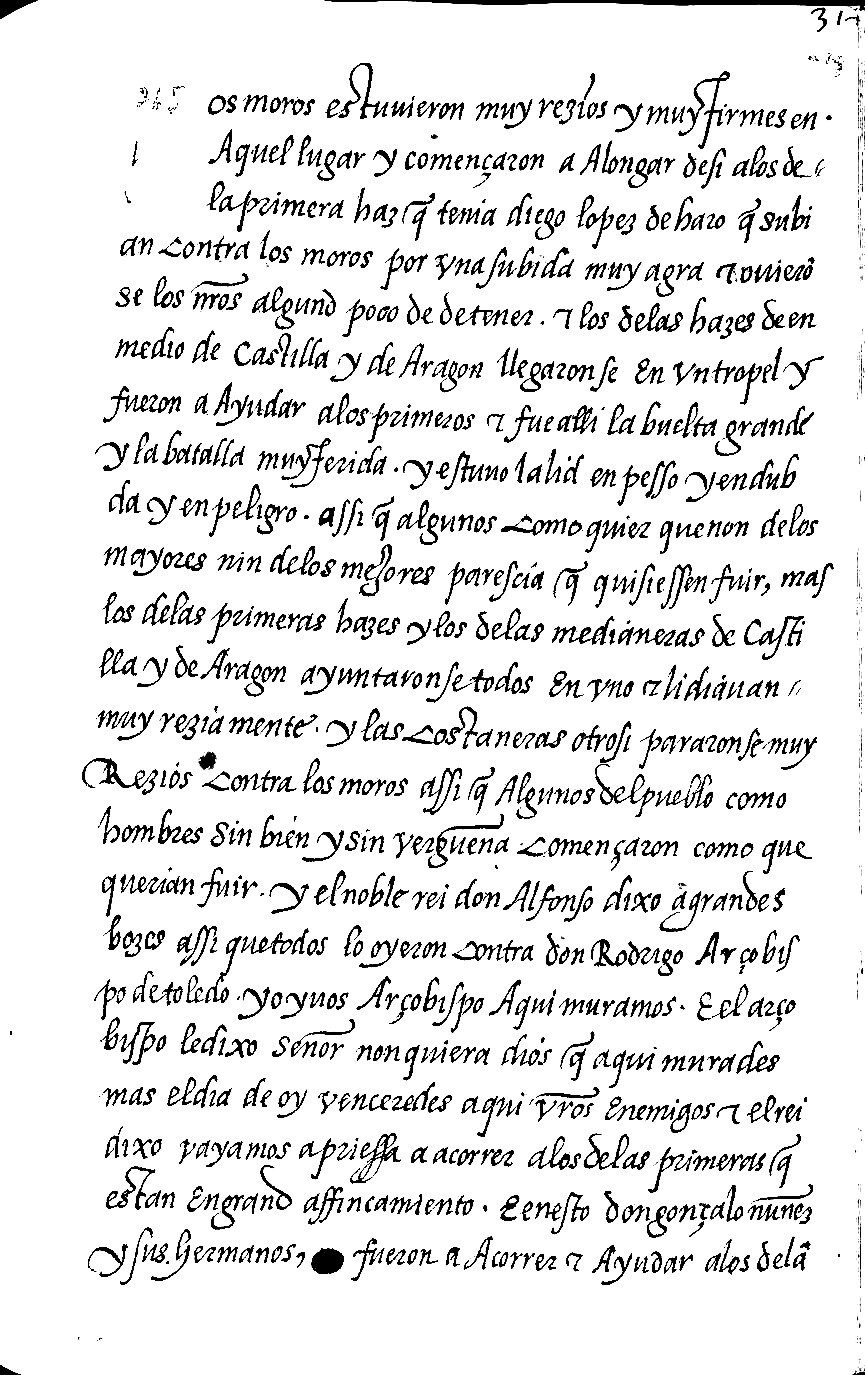 317
os moros estuuieron muy rezios y muy firmes en.
Aquel lugar y començaron a Alongar desi alos de
la primera haz q̃ tenia diego lopez de haro q̃ subi
an contra los moros por vna subida muy agra τ ouierõ
se los nr̃os algund poco de detener. τ los delas hazes de en
medio de Castilla y de Aragon llegaronse En vn tropel y
fueron a Ayudar alos primeros τ fue alli la buelta grande
y la batalla muy ferida. y estuuo la lid en pesso y en dub
da y en peligro. assi q̃ algunos como quier que non delos
mayores nin delos mejores parescia q̃ quisiessen fuir, mas
los delas primeras hazes y los delas medianeras de Casti
lla y de Aragon ayuntaronse todos En vno τ lidiauan
muy reziamente. y las costaneras otrosi pararonse muy
Rezios contra los moros assi q̃ Algunos del pueblo como
hombres sin bien y sin verguena començaron como que
querian fuir. y el noble rei don Alfonso dixo a grandes
bozes assi que todos lo oyeron contra don Rodrigo Arçobis
po de toledo. yo y uos Arçobispo Aqui muramos. E el arço
bispo le dixo señor non quiera dios q̃ aqui murades
mas el dia de oy venceredes aqui vr̃os Enemigos τ el rei
dixo vayamos apriessa a acorrer alos delas primeras q̃
estan Engrand affincamiento. E en esto don gonçalo nuñez
y sus hermanos, fueron a Acorrer τ Ayudar alos delã